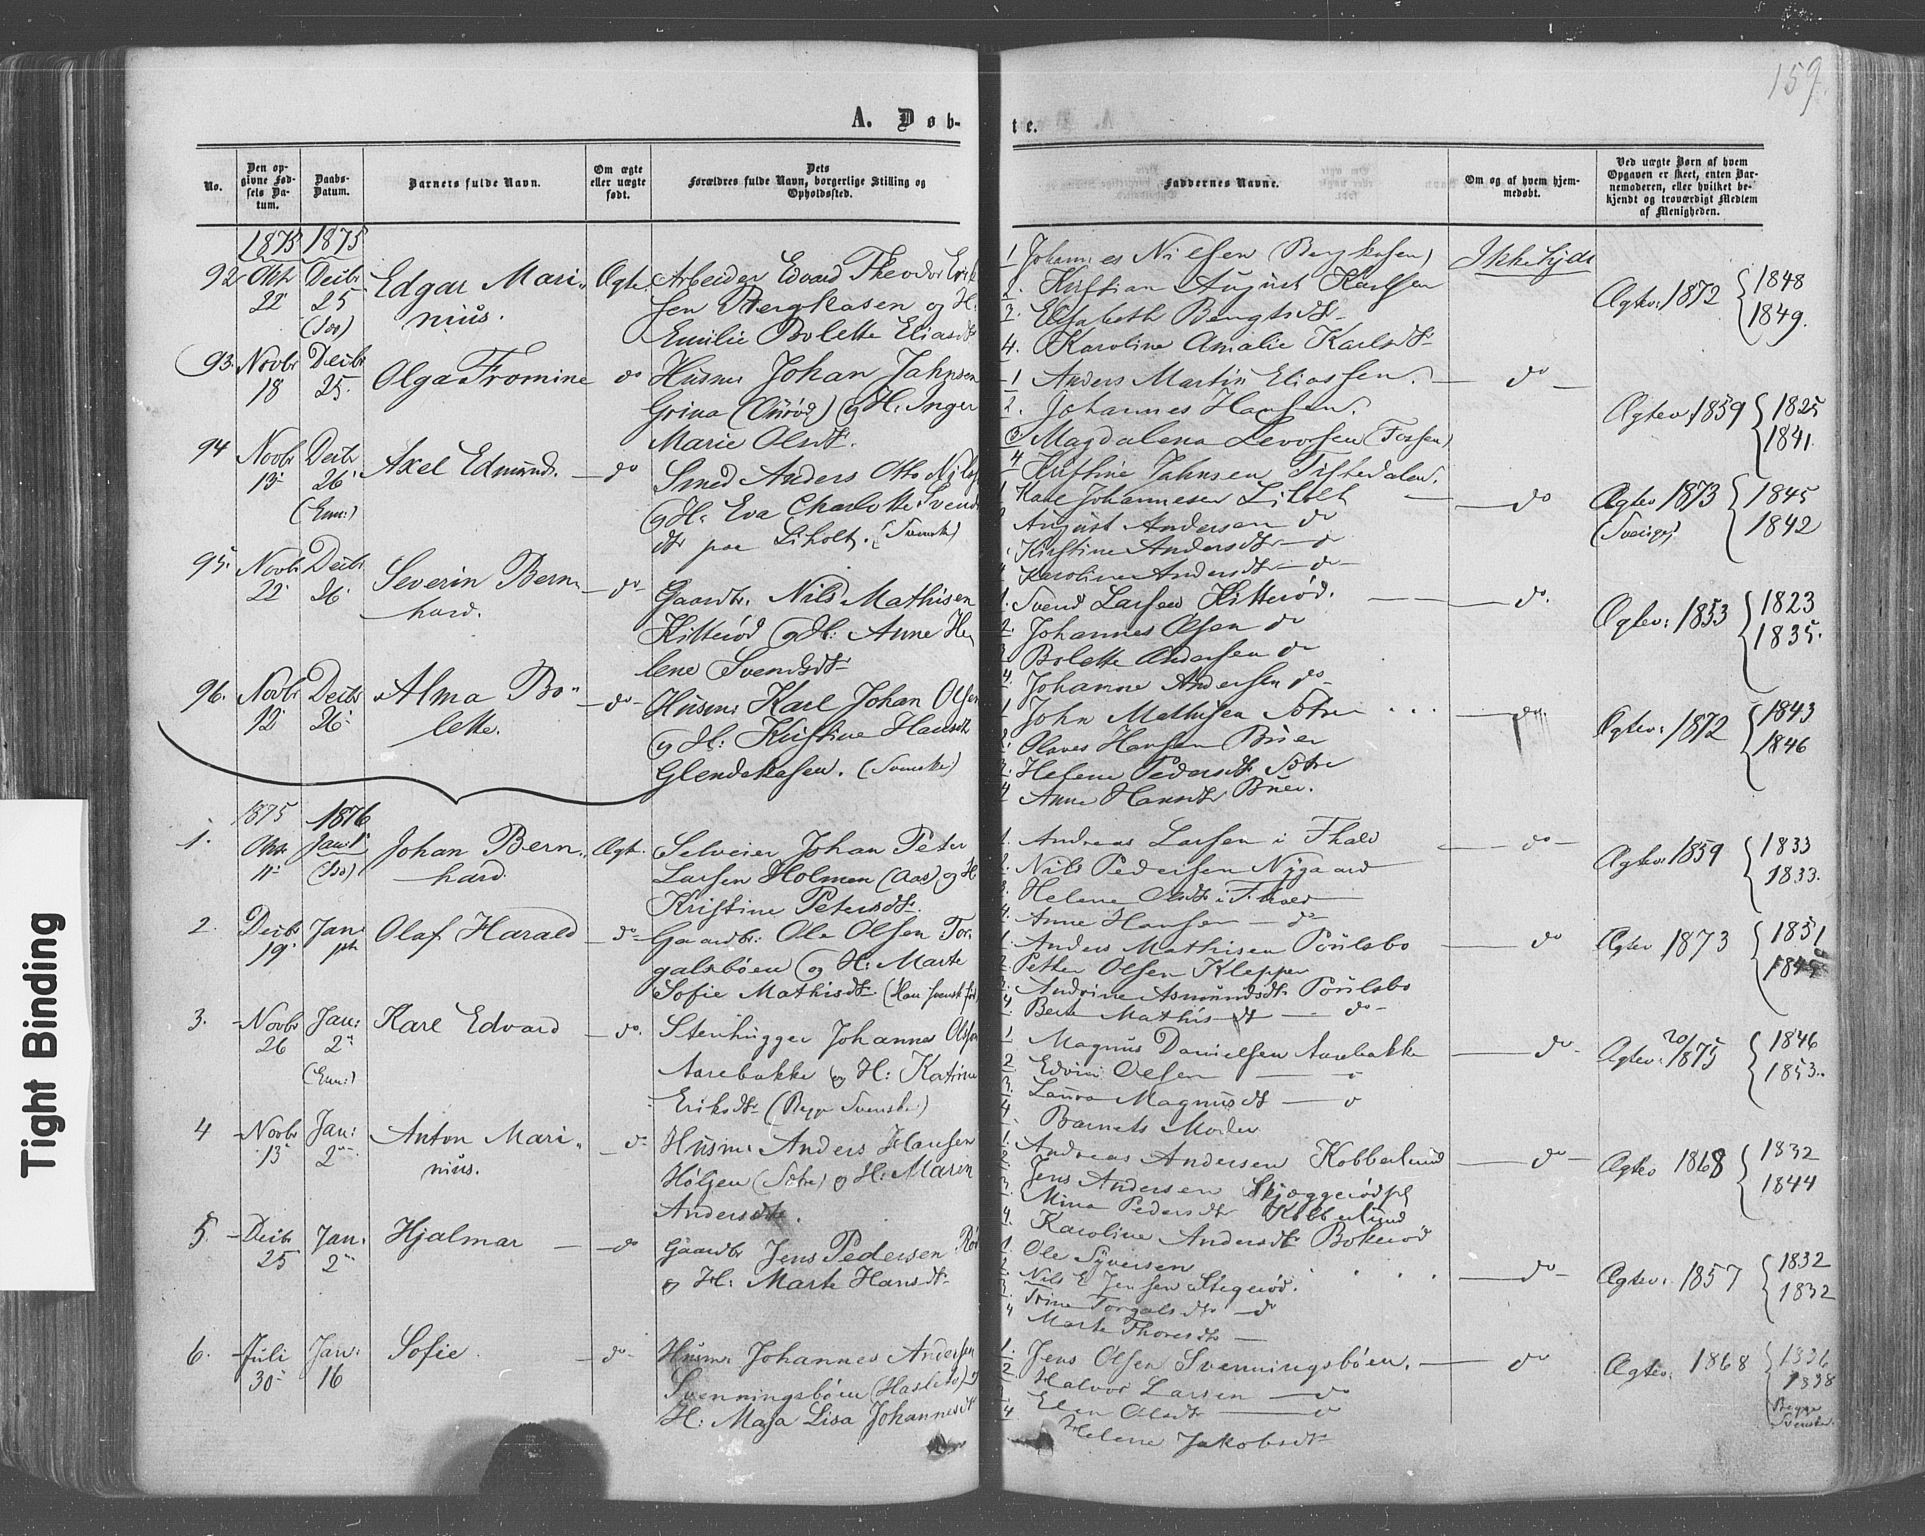 159.
A. Døb-
te.
No.
Den op-
givne Fød-
sels Da-
tum.
Daabs-
Datum.
Barnets fulde Navn.
Om ægte
eller uægte
født.
Dets
Forældres fulde Navn, borgerlige Stilling og
Opholdssted.
Faddernes Navne.
Om og af hvem hjem-
medøbt.
Ved uægte Børn af hvem
Opgaven er skeet, enten Bar-
nemoderen, eller hvilket be-
kjendt og troværdigt Medlem
af Menigheden.
1875 1875
92 Oktr 22 Decbr 25 (Ids) Edgar Mari-
nius.
Ægte Arbeider Edvard Theodor Erik
sen Bergkasen og H.
Emilie Bolette Eliasdt
1 Johannes Nilsen (Bergkasen)
2. Kristian August Karlsen
3. Elisabeth Bengtsdtr
4. Karoline Amalie Karlsdtr
Ikke hjdt
Ægtev: 1872 1848
1849.
93. Novbr 18 Decbr 25. Olga Fromine do Husm. Johan Jahnsen
Grina og H. Inger
Marie Olsdtr.
1 Anders Martin Eliassen.
2. Johannes Hansen.
3 Magdalena Levorsen (Fossen)
4 Kristine Jahnsen Tistedalen.
do
Ægtev: 1859 1825
1841.
94 Novbr 13 Decbr 26. (Enn:) Axel Edmund. do Smed Anders Otto Nils
og H. Eva Charlotte Svends
dtr paa Liholt. (Svenske)
1 Karl Johannesen Liholt
2 August Andersen do
Kristine Andersdtr do
Karoline Andersdtr do
do
Ægtev 1873 1845
(Sverige) 1842
95. Novbr 22 Decbr 26. Severin Bern-
hard.
do Gaardbr. Nils Mathisen
Kitterød og H: Anne He
lene Svendsdtr
1. Svend Larsen Kitterød.
2. Johannes Olsen do
3 Bolette Andersen do
4. Johanne Andersen do
do.
Ægtev: 1853 1823
1835.
96. Novbr 12 Decbr 26. Alma Bo-
lette.
do Husm: Karl Johan Olsen
og H: Kristine Hansdt
Glendekasen. (Svenske)
1 John Mathisen Sætre
2 Olaves Hansen Buer
3. Helene Pedersdtr Sætre
4 Anne Hansdtr Buer.
do
Ægtev: 1872 1843
1846
1875 1876
1. Oktr 11 Jan 1 (Ids) Johan Bern-
hard
Ægt. Selveier Johan Peter
Larsen Holmen (Aas) og H.
Kristine Petersdtr.
1. Andreas Larsen i Thald
2. Nils Pedersen Nygaard
3. Helene Olsdtr i Thald
4. Anne Hansen do
do
Ægtev: 1859 1833
1833.
2. Decbr 19 Jan: Olaf Harald do Gaardbr: Ole Olsen Tor-
galsbøen og H: Marte
Sofie Mathisdtr (Han svensk
1. Anders Mathisen Poulsbo
2. Petter Olsen Klepper
3. Andrine Asmundsdtr Poulsbo
4. Berte Mathisdt do
do
Ægtev 1873 1851
3. Novbr 26 Jan: 2 (Enn:) Karl Edvard do. Stenhugger Johannes Olsen
Aarebakke og H: Katrine
Eriksdtr (Begge Svenske)
1 Magnus Danielsen Aarebakke
2 Edvin Olsen do
3. Laura Magnusdt do
4. Barnets Moder
do
Ægtev: 20/ 1875 1846
1853.
4 Novbr 13 Jan: 2 Anton Mari-
nius.
do Husm. Anders Hansen
Holsen (Sætre) og H: Marin
Andersdtr.
1. Andreas Andersen Kobberlund
2. Jens Andersen Skjeggerød pl
3. Mina Pedersdtr Kobberlund
4. Karoline Andersdtr Bokerød
do
Ægtev 1868 1832
1844
5. Decbr 25 Jan: 2 Hjalmar do Gaardbr Jens Pedersen Rø
og H: Marte Hansdtr
1. Ole Syversen
2. Nils E Jensen Stegerød.
3. Trine Torgalsdtr do
4 Marte Thoresdtr
do
Ægtev: 1857 1832
1832
6. Juli 30 Jan: 16 Sofie. do Husm: Johannes Andersen
Svenningsbøen
H: Maja Lisa Johannesdt
1. Jens Olsen Svenningsbøen.
2 Halvor Larsen do
3 Elen Olsdtr do
4 Helene Jakobsdtr
do
Ægtev: 1868 1836
1838
Begge
Svenske.
Tight Binding